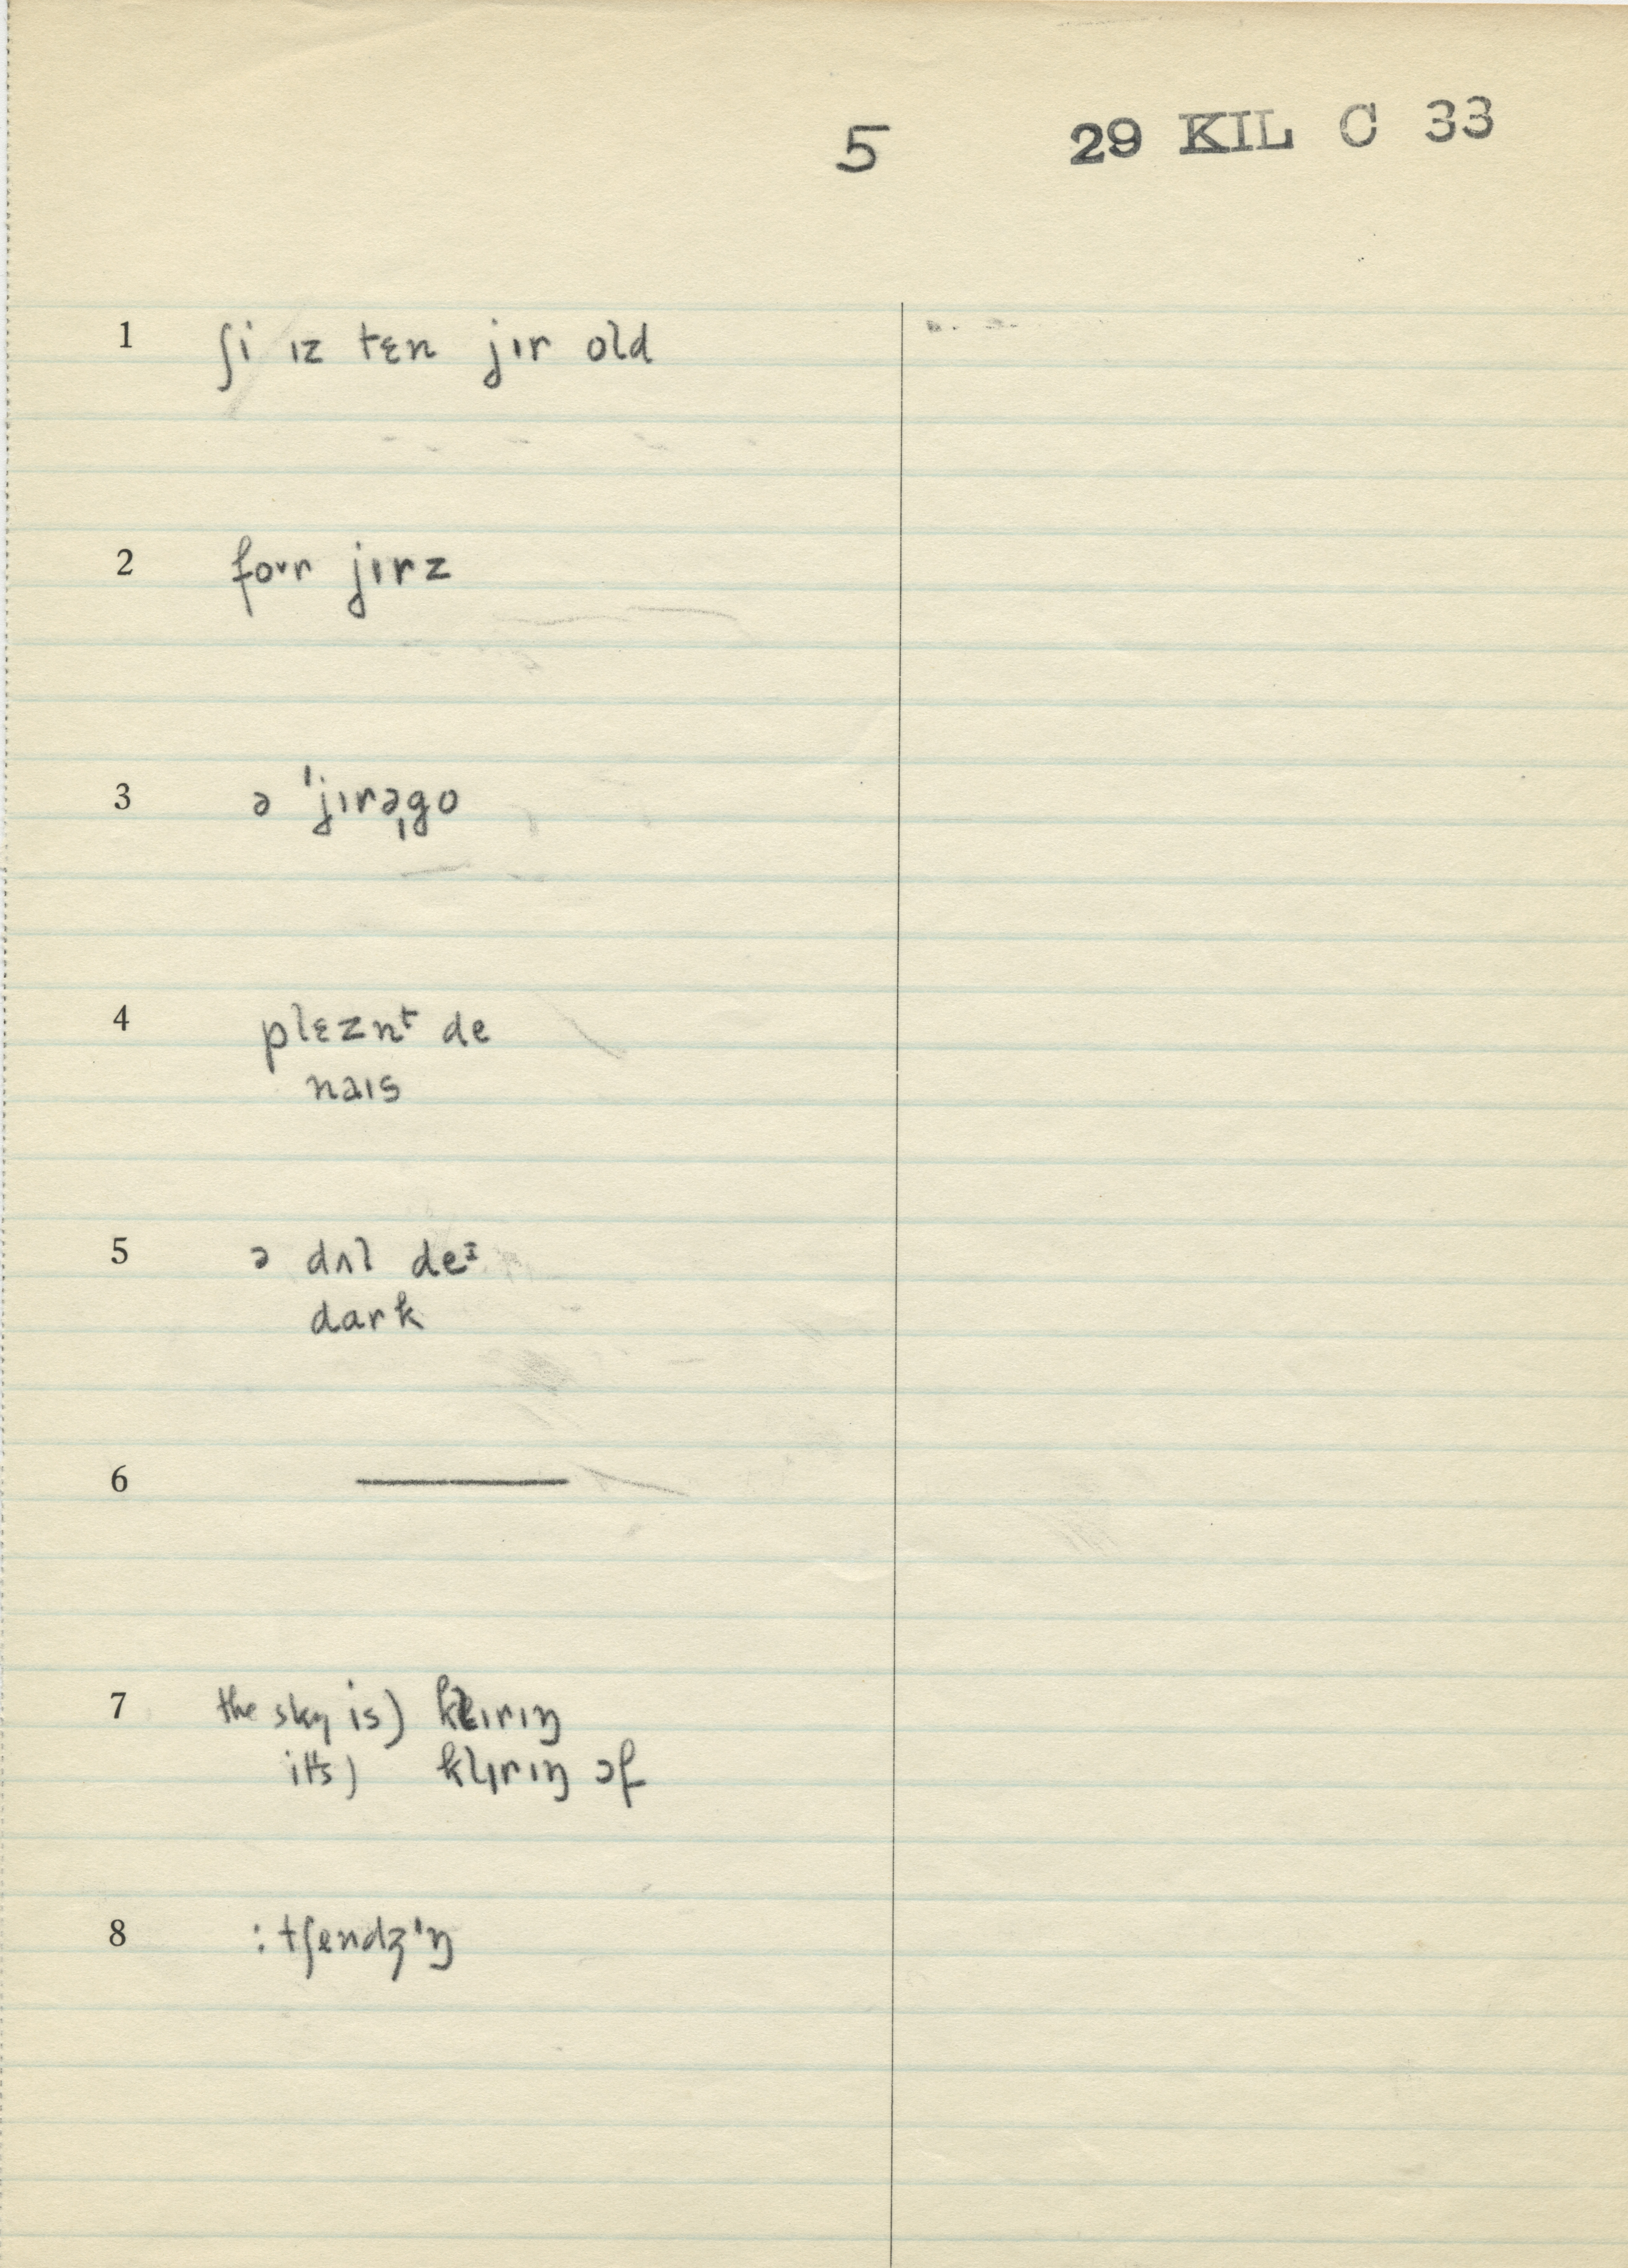 5 29 KIL C 33
1 ʃi ɪz tɛn jɪr old
2 foʊr jɪrz
3 ə ˈjɪrəˌgo
4 plɛznt de
naɪs
5 ə dʌl deɪ
dark
6 —
7 the sky is) klɪrɪŋ
it's) klɪrɪŋ ɔf
8 : tʃendʒɪŋ